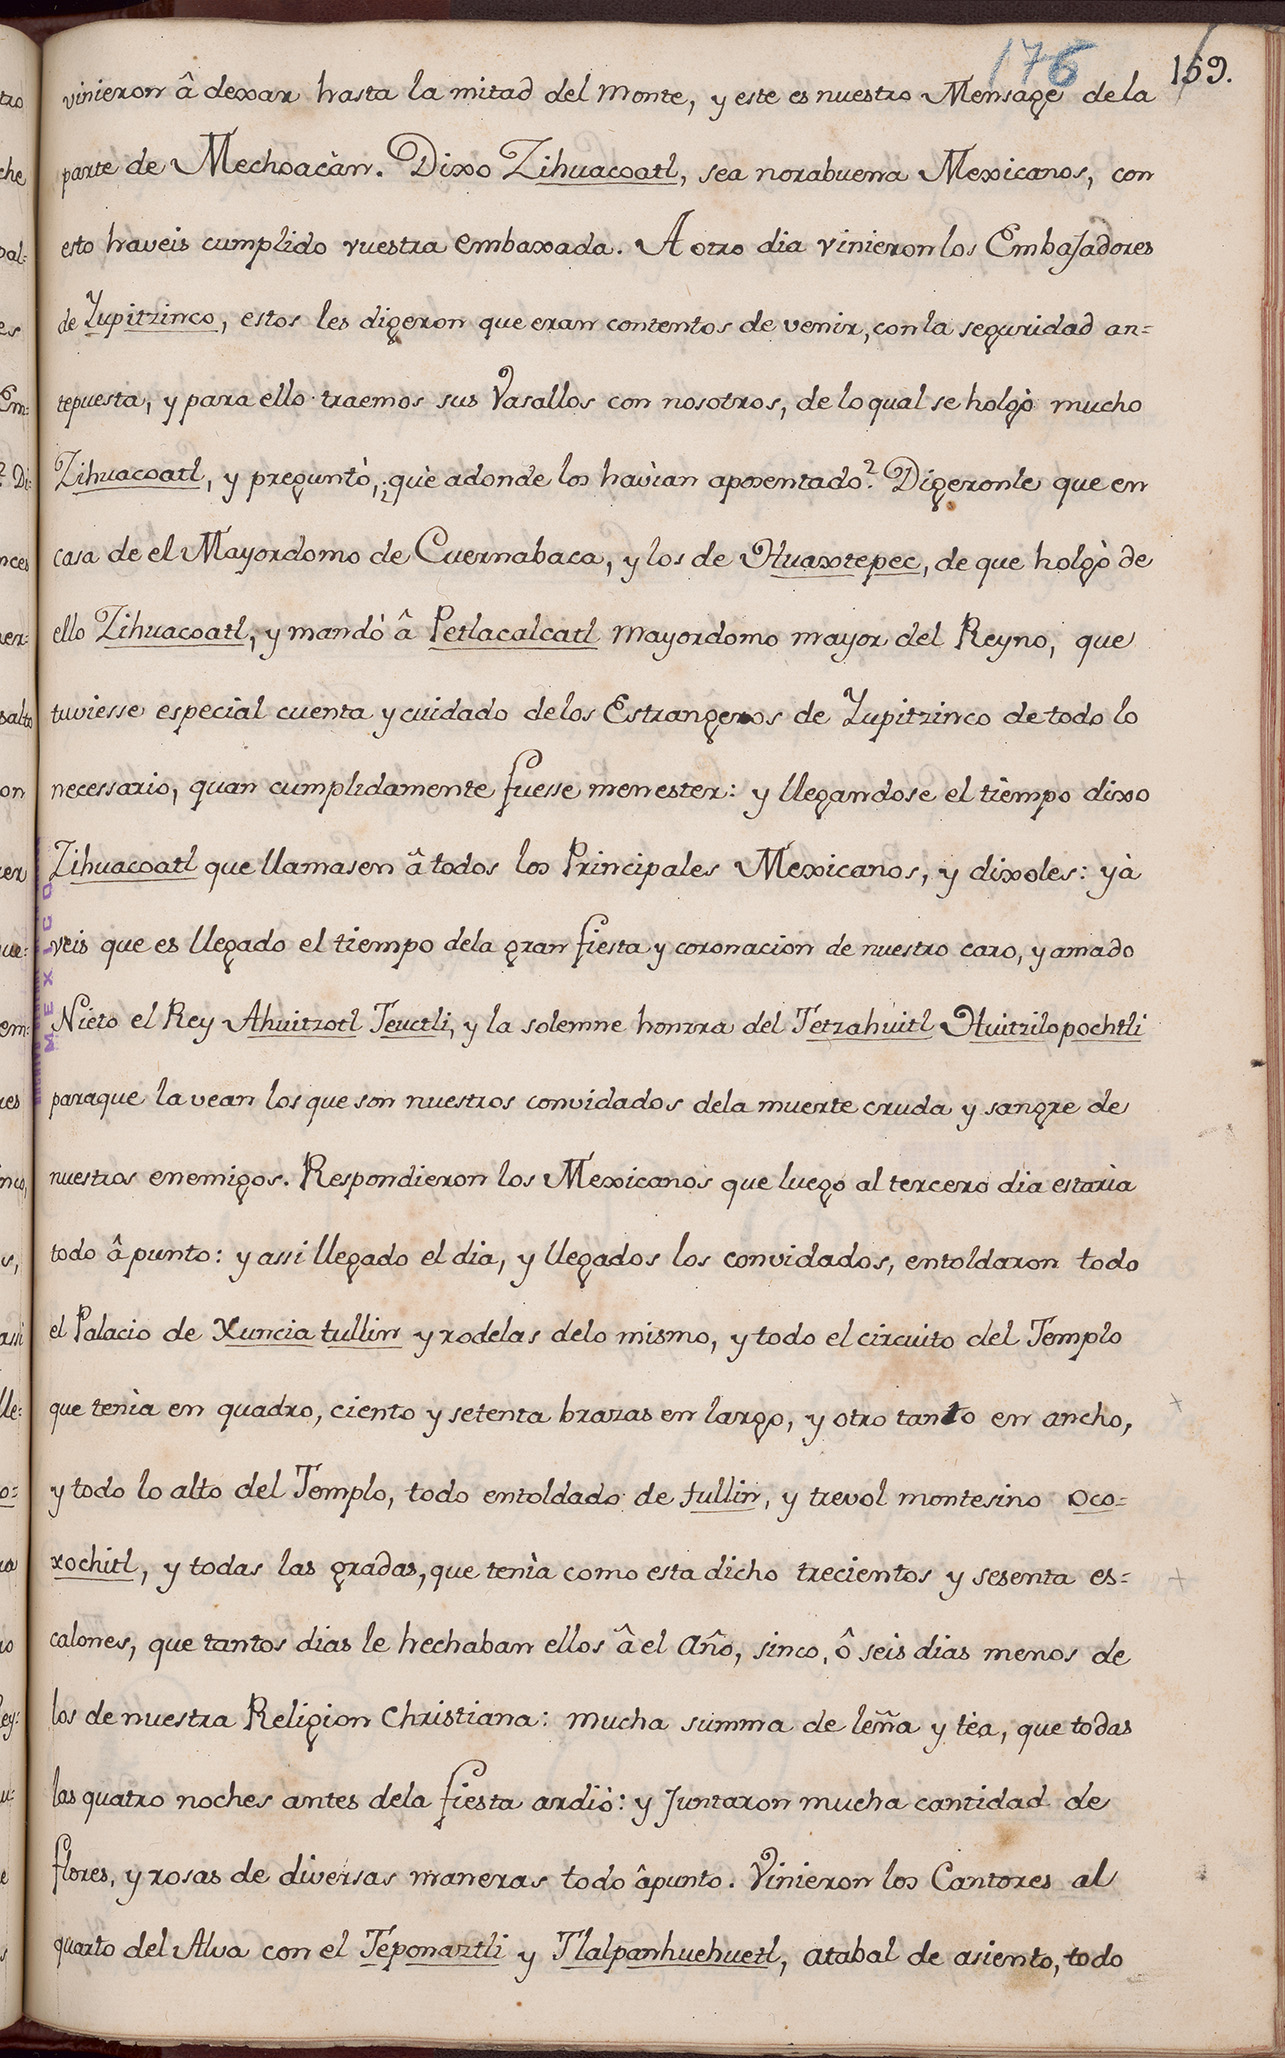 176 159.
vinieron â dexar hasta la mitad del monte, y este es nuestro Mensage dela
parte de Mechoacàn. Dixo Zihuacoatl, sea norabuena Mexicanos, con
esto haveis cumplido vuestra embaxada. A otro dia vinieron los Embajadores
de Yupitzinco, estos les digeron que eran contentos de venir, con la seguridad an=
tepuesta, y para ello traemos sus Vasallos con nosotros, de lo qual se holgò mucho
Zihuacoatl, y preguntò, ¿què adonde los havìan aposentado? Digeronle que en
casa de el Mayordomo de Cuernabaca, y los de Huaxtepec, de que holgò de
ello Zihuacoatl, y mandò â Petlacalcatl mayordomo mayor del Reyno, que
tuviesse especial cuenta y cuidado delos Estrangeros de Yupitzinco de todo lo
necessario, quan cumplidamente fuesse menester: y llegandose el tiempo dixo
Zihuacoatl que llamasen â todos los Principales Mexicanos, y dixoles: yà
veis que es llegado el tiempo dela gran fiesta y coronacion de nuestro caro, y amado
Nieto el Rey Ahuitzotl Teuctli, y la solemne honrra del Tetzahuitl Huitzilopochtli
paraque la vean los que son nuestros convidados dela muerte cruda y sangre de
nuestros enemigos. Respondieron los Mexicanos que luego al tercero dia estarìa
todo â punto: y assi llegado el dia, y llegados los convidados, entoldaron todo
el Palacio de Xuncia tullin y rodelas delo mismo, y todo el circuito del Templo
que tenìa en quadro, ciento y setenta brazas en largo, y otro tanto en ancho,
y todo lo alto del Templo, todo entoldado de tullin, y trevol montesino oco=
xochitl, y todas las gradas, que tenìa como esta dicho trecientos y sesenta es=
calones, que tantos dias le hechaban ellos â el Año, sinco, ô seis dias menos de
los de nuestra Religion Christiana: mucha summa de leña y tèa, que todas
las quatro noches antes dela fiesta ardiò: y juntaron mucha cantidad de
flores, y rosas de diversas maneras todo âpunto. Vinieron los Cantores al
quarto del Alva con el Teponaztli y Tlalpanhuehuetl, atabal de asiento, todo